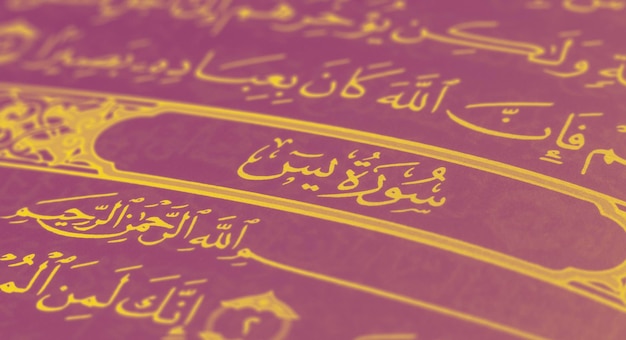 وَلَٰكِن يُؤَخِّرُهُمْ إِ
فَإِنَّ ٱللَّهَ كَانَ بِعِبَادِهِۦ بَصِيرًا
سُورَةُ يسٓ
بِسْمِ ٱللَّهِ ٱلرَّحْمَٰنِ ٱلرَّحِيمِ
٢ إِنَّكَ لَمِنَ ٱلْمُ